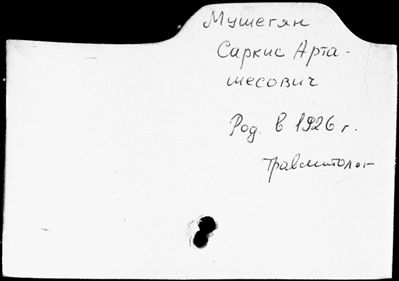 Мушегян
Саркис Арта-
шесович
Род. в 1926 г.
Травматолог